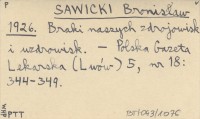 P
SAWICKI Bronisław
1926. Braki naszych zdrojowisk
i uzdrowisk. — Polska Gazeta
Lekarska (Lwów) 5, nr 18:
344-349.
PTT